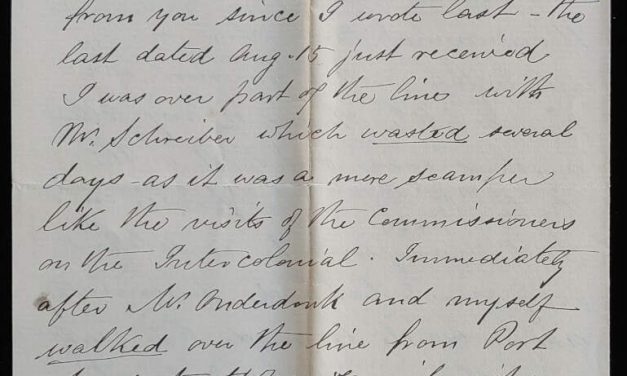 from you since I wrote last - the
last dated Aug. 15 just received
I was over part of the line with
Mr. Schreiber which wasted several
days - as it was a mere scamper
like the visits of the Commissioners
on the Intercolonial. Immediately
after Mr. Onderdonk and myself
walked over the line from Port